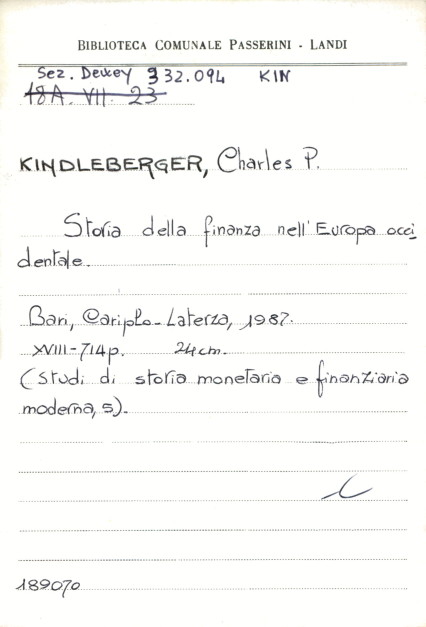 BIBLIOTECA COMUNALE PASSERINI - LANDI
Sez. Dewey 332.094 KIN
18A. VII. 23
KINDLEBERGER, Charles P.
Storia della finanza nell'Europa occi
dentale.
Bari, Cariplo-Laterza, 1987.
XVIII-714p. 24cm.
(Studi di storia monetaria e finanziaria
moderna, 5).
189070